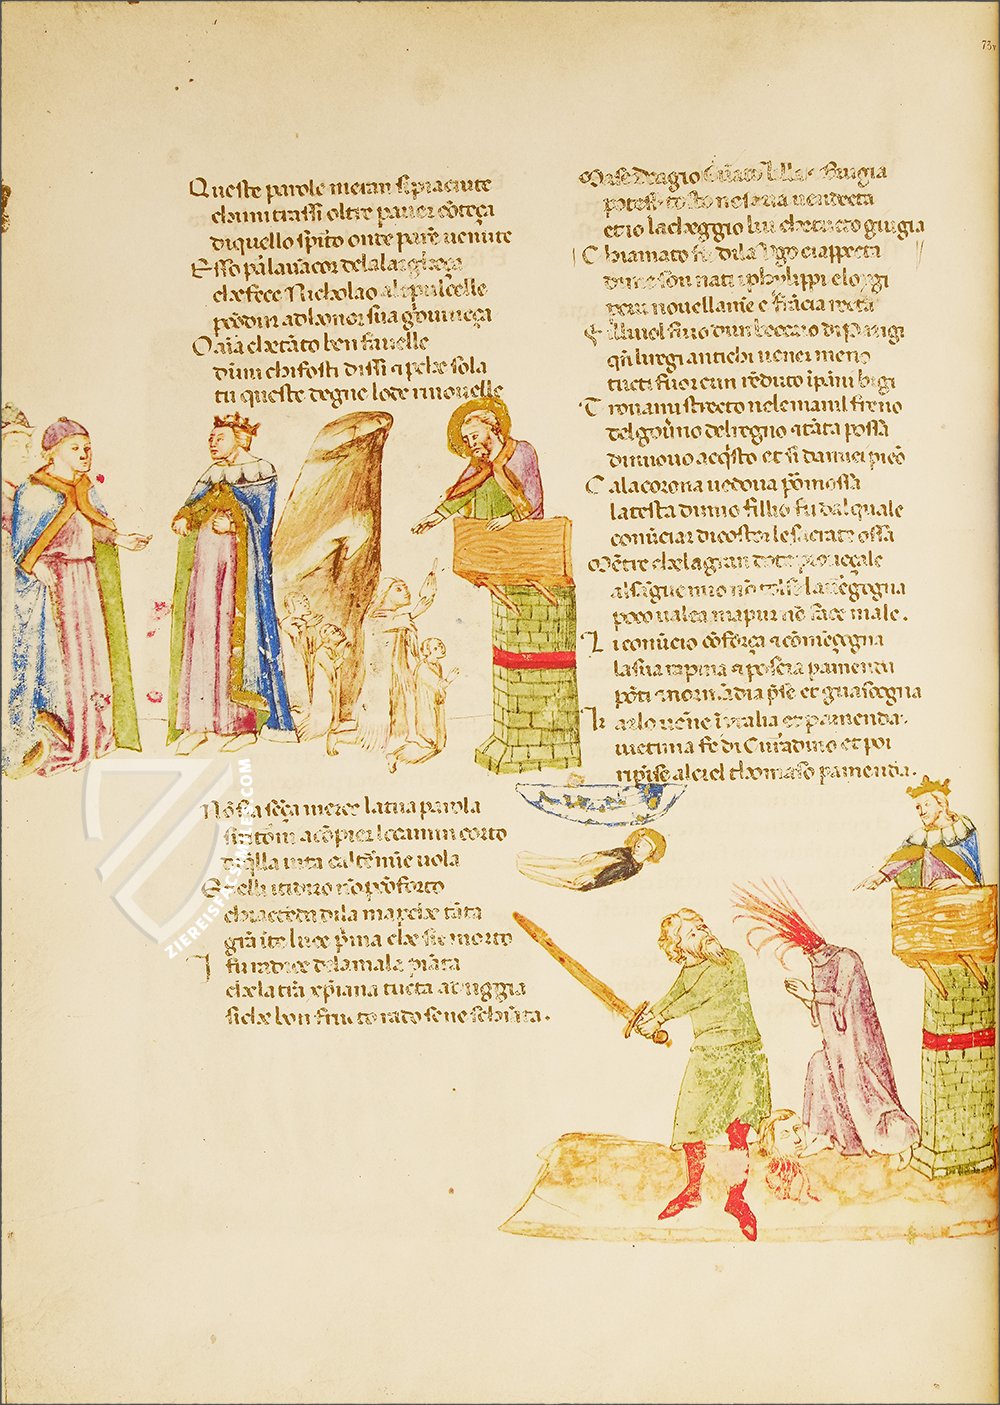 73v
Queste parole meran si piaciute
chimi trassi oltre p aver cõteça
di quello spĩto onde parẽ venute
Esso plavãcor dela largheça
che fece Nicholao ale pulcelle
p cõdur ad honor sua giovineça
O aĩa che tãto ben favelle
dimi chi fosti dissi et pche sola
tu queste degne lode rinovelle
Nõ fia sẽça merce la tua parola
sio torno a cõpier lo camin corto
di qlla vita cal tẽmine vola
Et elli i ti diro nõ p cõforto
chi accecti di la ma pche tãta
grã ĩ te luce pma che sie morto
I fu radice dela mala piãta
che la tra xpiana tucta aduggia
si che bon fructo rado sene schiãta.
Ma se doagio Guãto Lilla et Brugia
potesser tosto ne seria vendecta
et io la cheggio lui che tucto giugia
Chiamato fu di la Ugo ciappecta
di me son nati i phylippi e loygi
per cui novellamte e frãcia recta
Filliuol fu io dun beccaio di parigi
qñ li regi antichi vener meno
tucti fuor cun rẽduto ĩ pãni bigi
Trovami strecto nele mani il freno
del govno del regno et tãta possa
di nuovo acqsto et si damici pieno
Cala corona vedova pmossa
la testa di mio fillio fu dal quale
comĩciar di costor le sacrate ossa
Mẽtre che la gran dote provẽçale
al sãgue mio nõ tolse la vgogna
poco valea ma pur nõ facea male.
Li comĩcio cõ força et cõ mẽçogna
la sua rapina et poscia p amenda
põti et normãdia pse et guascogna
Karlo vẽne ĩ ytalia et p amenda.
victima fe di Curadino et poi
ripinse al ciel thomaso p amenda.
ZIEREIS FACSIMILES.COM